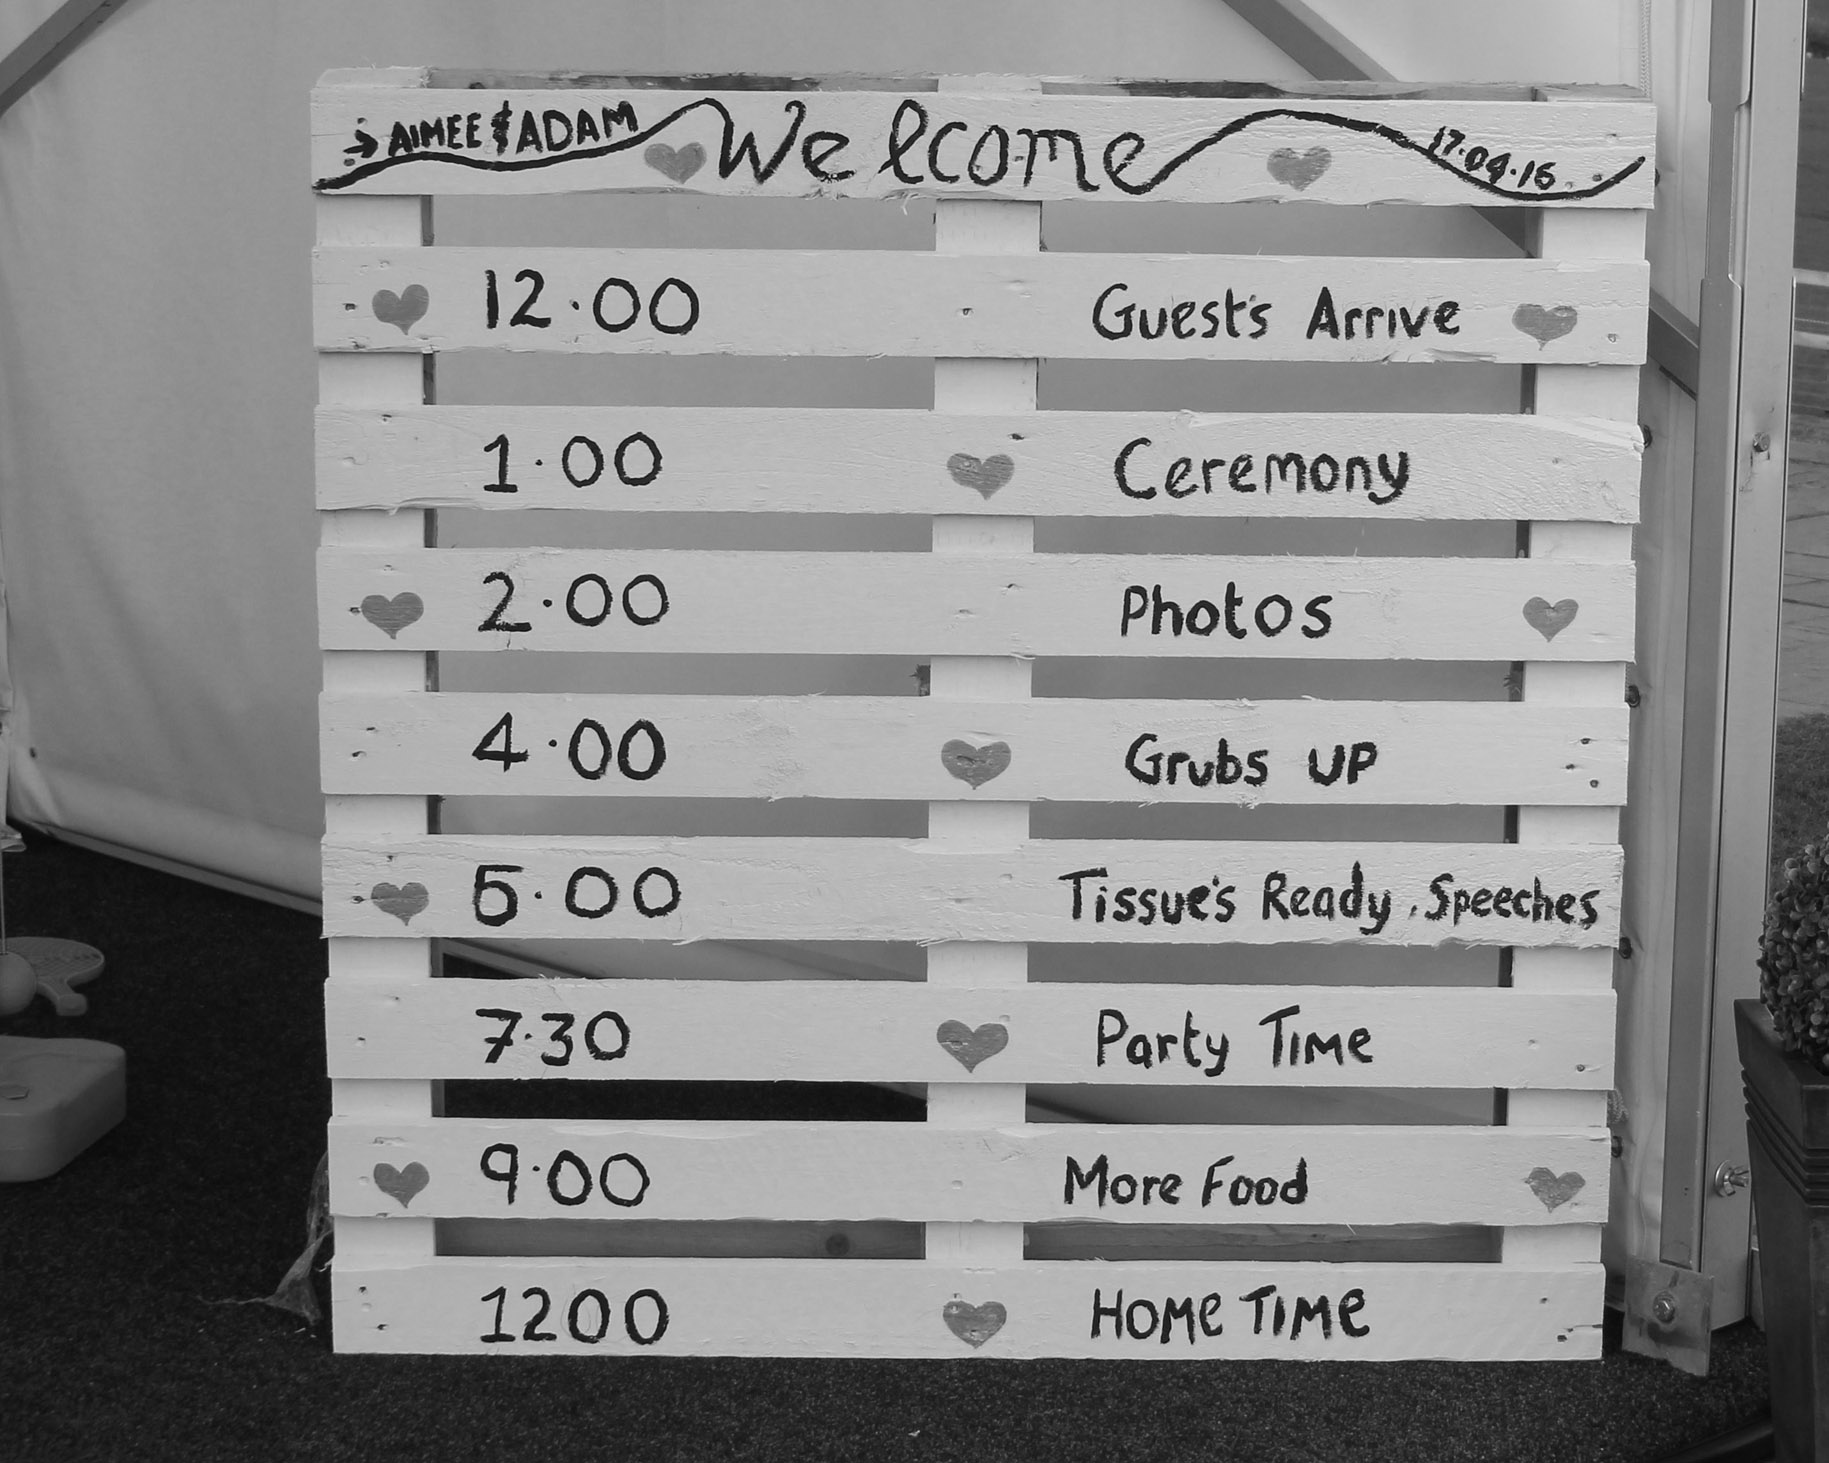 → AIMEE & ADAM Welcome 17.04.16
12.00 Guest's Arrive
1.00 Ceremony
2.00 Photos
4.00 Grubs UP
5.00 Tissue's Ready. Speeches
7.30 Party Time
9.00 More Food
1200 Home Time